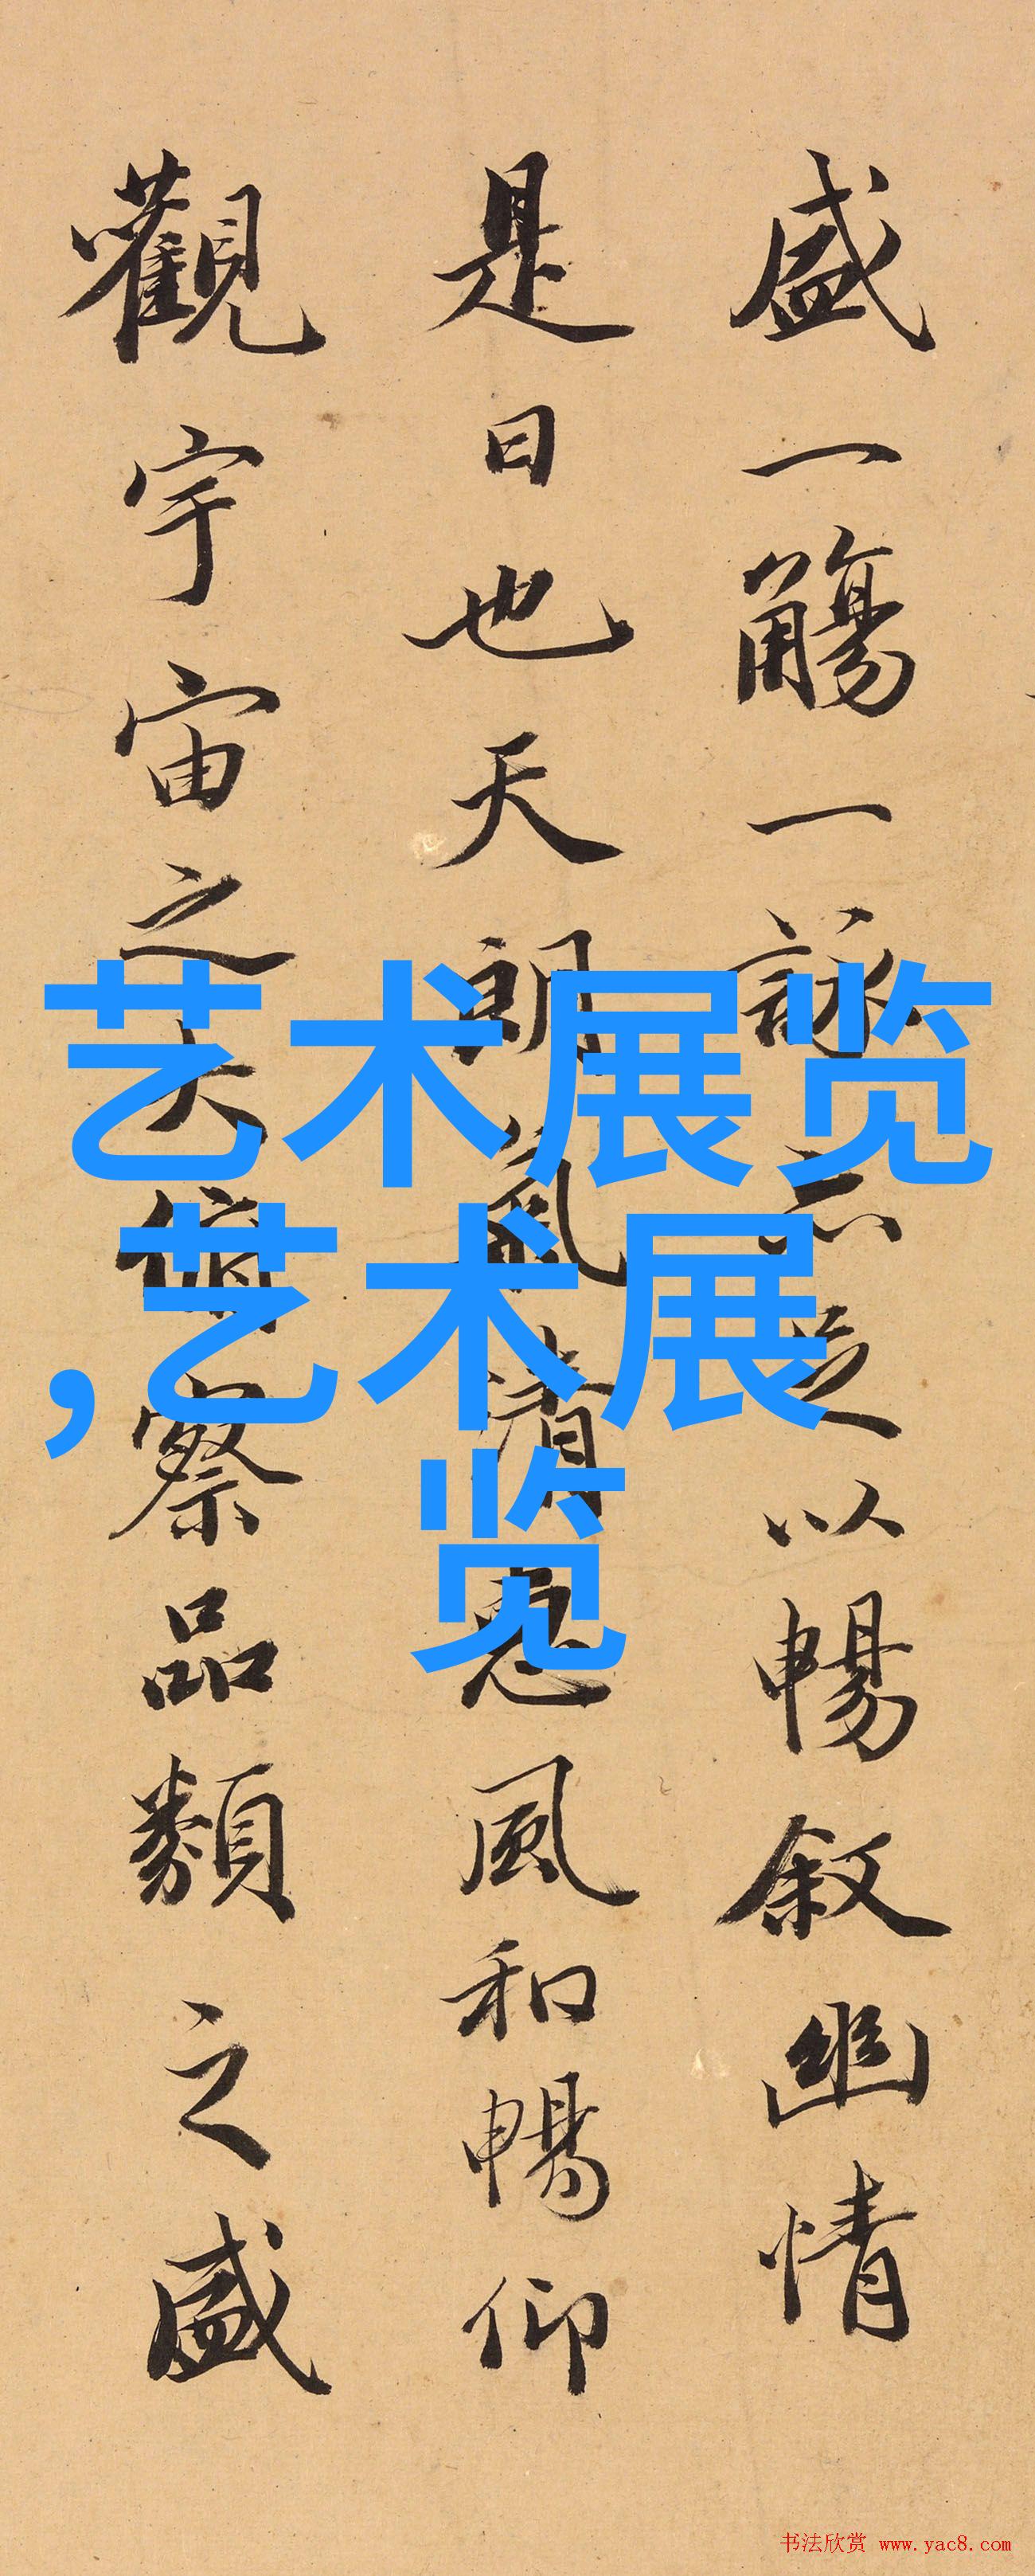 盛一觴一詠亦足以暢叙幽情
是日也天朗氣清惠風和暢仰
觀宇宙之大俯察品類之盛
艺术展览
,艺术展
览
书法欣赏 www.yac8.com